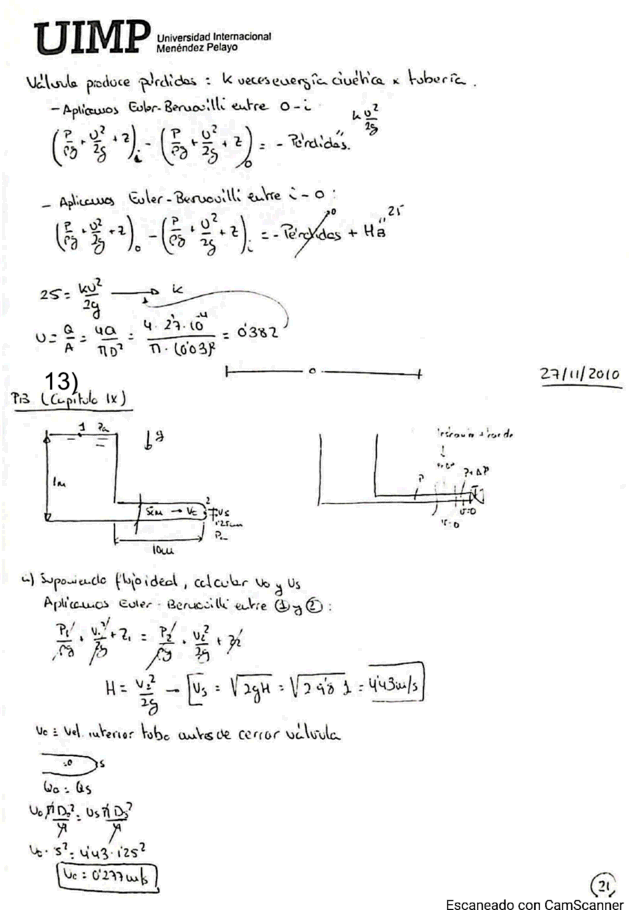 UIMP Universidad Internacional
Menéndez Pelayo
Válvula produce pérdidas : k veces energía cinética x tubería.
- Aplicamos Euler-Bernouilli entre 0-i
(P/ρg + U²/2g + z)i - (P/ρg + U²/2g + z)0 = - Pérdidas. " kU²/2g
- Aplicamos Euler-Bernouilli entre i-0 :
(P/ρg + U²/2g + z)0 - (P/ρg + U²/2g + z)i = - Pérdidas →0 + HB " 25
25 = kU²/2g → k
U = Q/A = 4Q/ΠD² = 4·2'7·10⁻⁴/Π·(0'03)² = 0'382
13)
27/11/2010
P13 (Capítulo IX)
1 Pa
↓g
1m
5cm → Vc
2
Us
1'25cm
Pa
10m
P
P+ΔP
U=0
U=0
a) Suponiendo flujo ideal, calcular U0 y Us
Aplicamos Euler-Bernouilli entre ① y ②:
P1/ρg + V1²/2g + Z1 = P2/ρg + V2²/2g + Z2
H = V2²/2g → Vs = √2gH = √2 9'8 1 = 4'43m/s
Uc ≡ Vel. interior tubo antes de cerrar válvula
0 s
Q0 = Qs
U0 Π D0²/4 = Us Π Ds²/4
U0 · 5² = 4'43 · 1'25²
Uc = 0'277 m/s
21
Escaneado con CamScanner